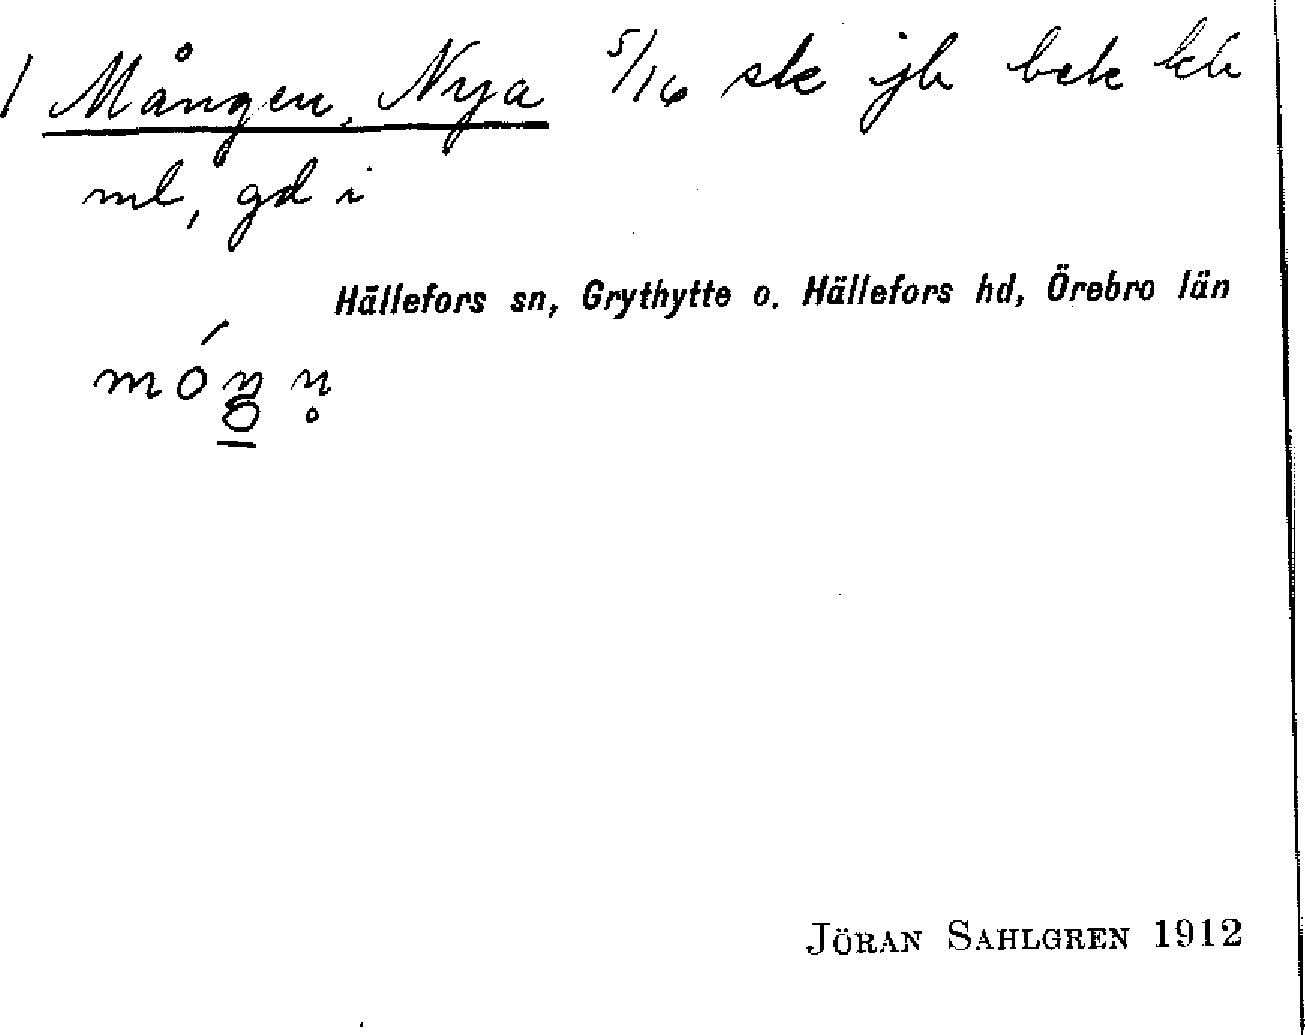 1 Mången, Nya 5/16 sk jb bek kb
ml, gd i
Hällefors sn, Grythytte o. Hällefors hd, Örebro län
móŋ̥̱ n̥
JÖRAN SAHLGREN 1912